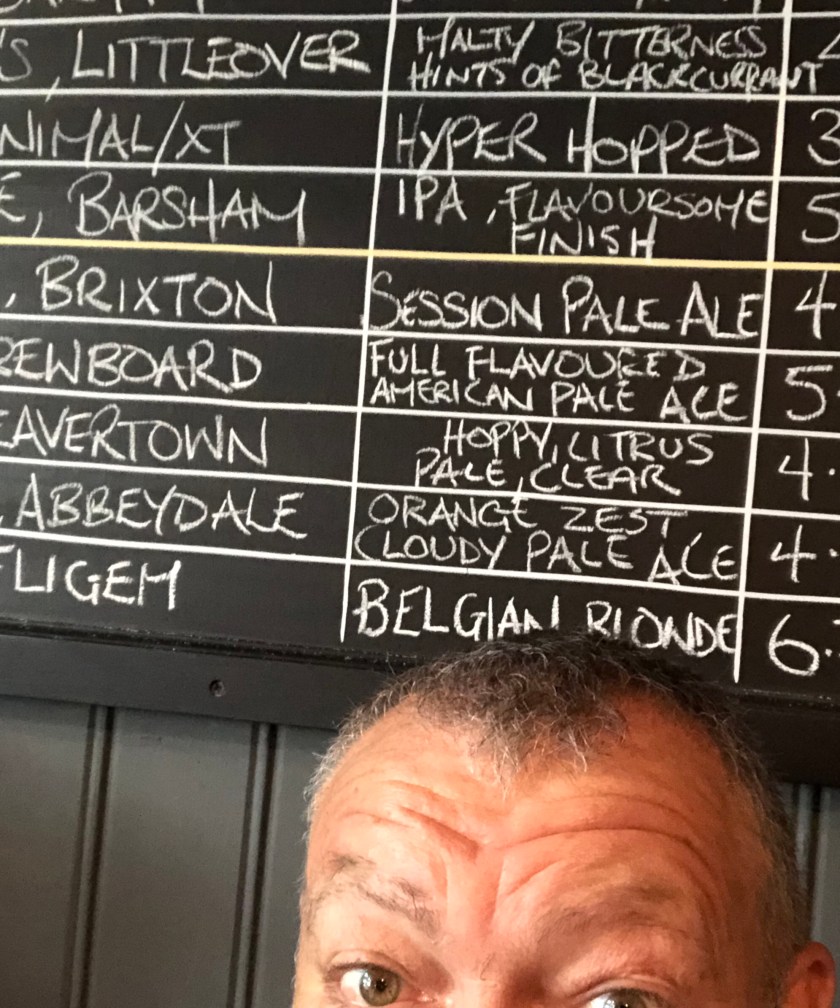 S, LITTLEOVER
MALTY BITTERNESS
HINTS OF BLACKCURRANT
NIMAL/XT
HYPER HOPPED
3
E, BARSHAM
IPA, FLAVOURSOME
FINISH
5
, BRIXTON
SESSION PALE ALE
4
REWBOARD
FULL FLAVOURED
AMERICAN PALE ALE
5
EAVERTOWN
HOPPY, CITRUS
PALE, CLEAR
4.
, ABBEYDALE
ORANGE ZEST
CLOUDY PALE ALE
4.
FLIGEM
BELGIAN BLONDE
6.